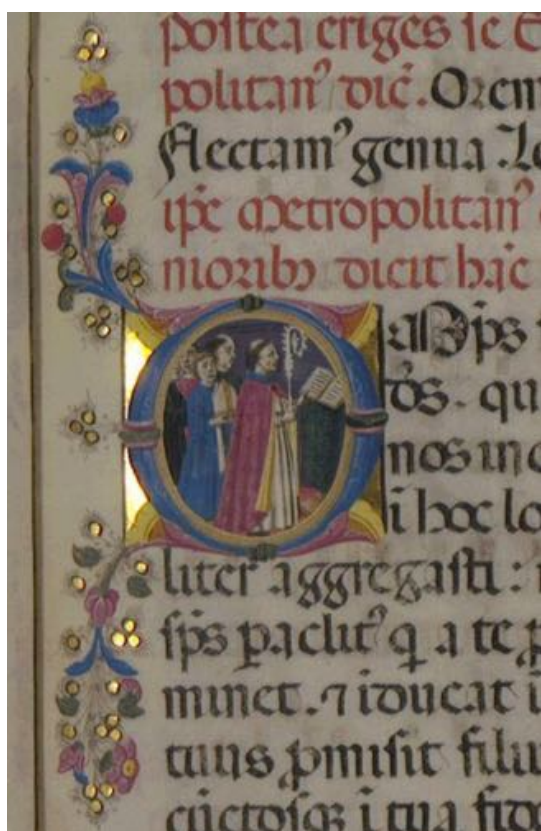 postea eriges se
politan᾽ dic̄. Orem
flectam᾽ genua. Le
ip̄e metropolitan᾽
moribꝫ dicit hāc
O
ds. qu
nos in
i hoc lo
liter aggregasti:
sp̄s paclit᾽ q a te p
minet. ⁊ iducat i
tuus pmisit filiu
cūctosqꝫ i tua fide